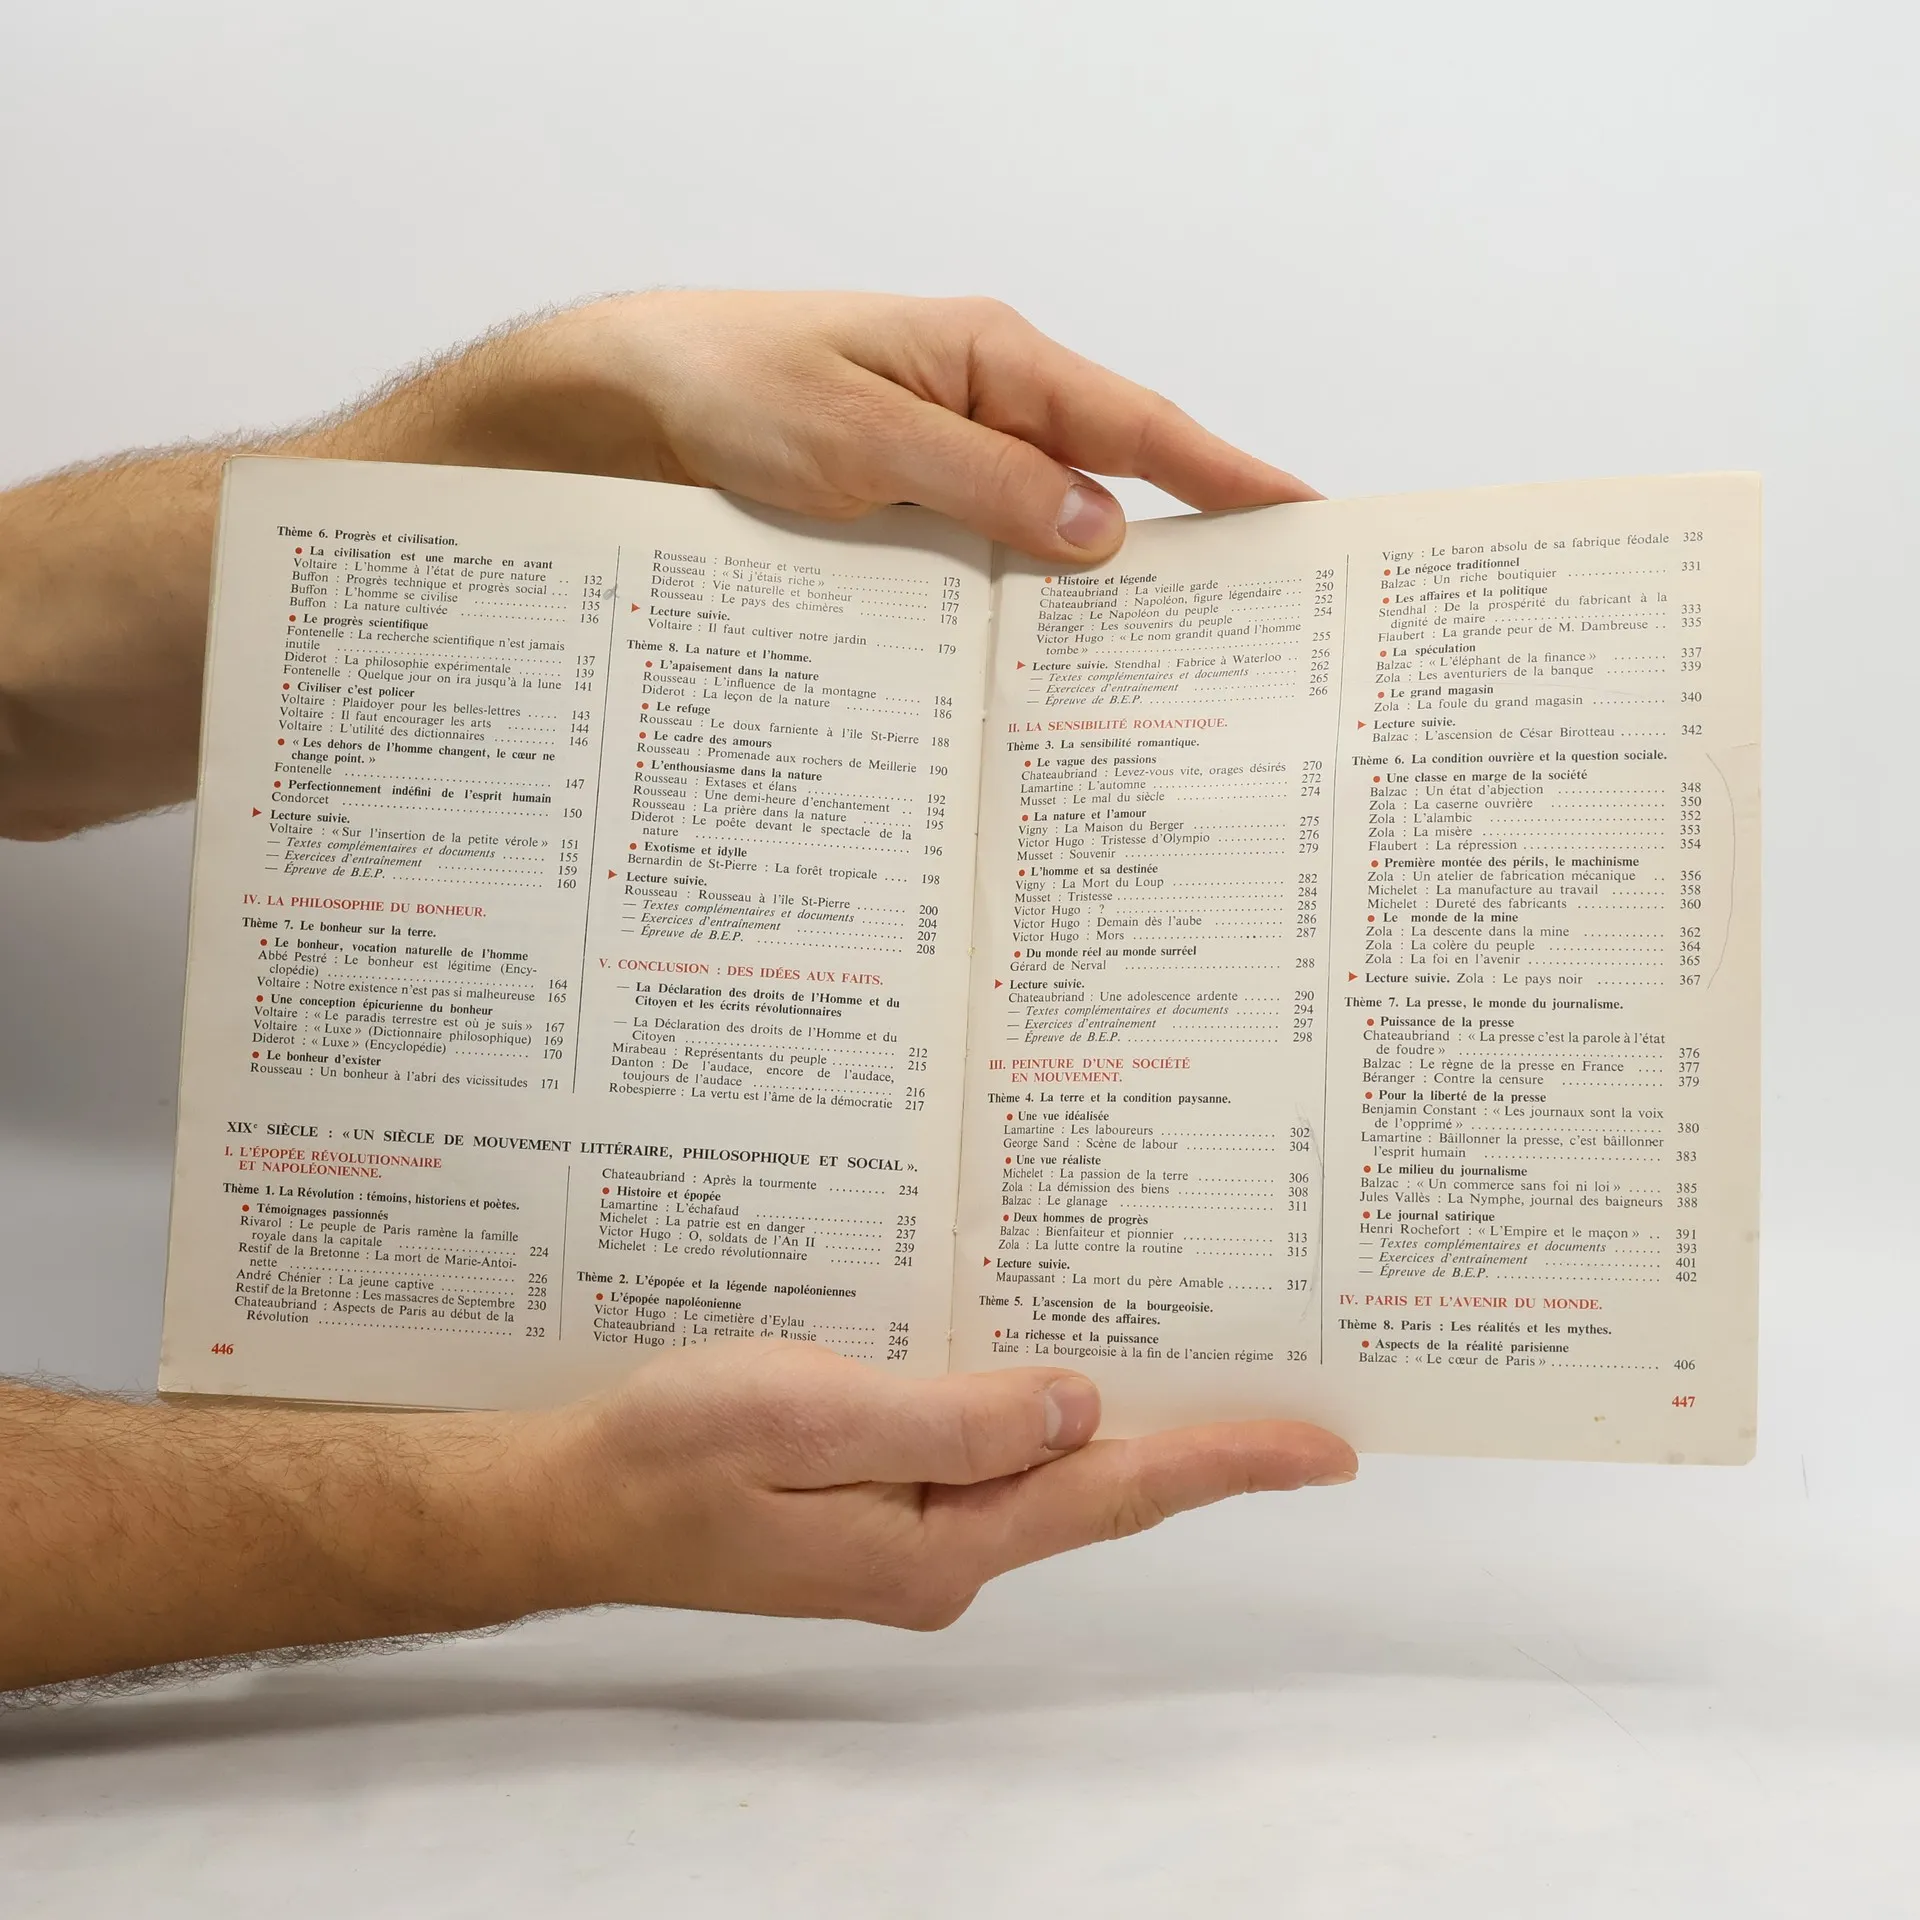 Thème 6. Progrès et civilisation.
• La civilisation est une marche en avant
Voltaire : L'homme à l'état de pure nature .. 132
Buffon : Progrès technique et progrès social ... 134
Buffon : L'homme se civilise ............ 135
Buffon : La nature cultivée ............ 136
• Le progrès scientifique
Fontenelle : La recherche scientifique n'est jamais
inutile ............ 137
Diderot : La philosophie expérimentale ....... 139
Fontenelle : Quelque jour on ira jusqu'à la lune 141
• Civiliser c'est policer
Voltaire : Plaidoyer pour les belles-lettres ..... 143
Voltaire : Il faut encourager les arts ........ 144
Voltaire : L'utilité des dictionnaires .......... 146
• « Les dehors de l'homme changent, le cœur ne
change point. »
Fontenelle ............ 147
• Perfectionnement indéfini de l'esprit humain
Condorcet ............ 150
▶ Lecture suivie.
Voltaire : « Sur l'insertion de la petite vérole » 151
— Textes complémentaires et documents ....... 155
— Exercices d'entraînement ............ 159
— Épreuve de B.E.P. ............ 160
IV. LA PHILOSOPHIE DU BONHEUR.
Thème 7. Le bonheur sur la terre.
• Le bonheur, vocation naturelle de l'homme
Abbé Pestré : Le bonheur est légitime (Ency-
clopédie) ............ 164
Voltaire : Notre existence n'est pas si malheureuse 165
• Une conception épicurienne du bonheur
Voltaire : « Le paradis terrestre est où je suis » 167
Voltaire : « Luxe » (Dictionnaire philosophique) 169
Diderot : « Luxe » (Encyclopédie) ........... 170
• Le bonheur d'exister
Rousseau : Un bonheur à l'abri des vicissitudes 171
Rousseau : Bonheur et vertu ............ 173
Rousseau : « Si j'étais riche » ............ 175
Diderot : Vie naturelle et bonheur ........... 177
Rousseau : Le pays des chimères ............ 178
▶ Lecture suivie.
Voltaire : Il faut cultiver notre jardin ........ 179
Thème 8. La nature et l'homme.
• L'apaisement dans la nature
Rousseau : L'influence de la montagne ...... 184
Diderot : La leçon de la nature ............ 186
• Le refuge
Rousseau : Le doux farniente à l'île St-Pierre 188
• Le cadre des amours
Rousseau : Promenade aux rochers de Meillerie 190
• L'enthousiasme dans la nature
Rousseau : Extases et élans ............ 192
Rousseau : Une demi-heure d'enchantement .. 194
Rousseau : La prière dans la nature ........ 195
Diderot : Le poète devant le spectacle de la
nature ............ 196
• Exotisme et idylle
Bernardin de St-Pierre : La forêt tropicale .... 198
▶ Lecture suivie.
Rousseau : Rousseau à l'île St-Pierre ........ 200
— Textes complémentaires et documents ...... 204
— Exercices d'entraînement ............ 207
— Épreuve de B.E.P. ............ 208
V. CONCLUSION : DES IDÉES AUX FAITS.
— La Déclaration des droits de l'Homme et du
Citoyen et les écrits révolutionnaires
— La Déclaration des droits de l'Homme et du
Citoyen ............ 212
Mirabeau : Représentants du peuple .......... 215
Danton : De l'audace, encore de l'audace,
toujours de l'audace ............ 216
Robespierre : La vertu est l'âme de la démocratie 217
XIXe SIÈCLE : « UN SIÈCLE DE MOUVEMENT LITTÉRAIRE, PHILOSOPHIQUE ET SOCIAL ».
I. L'ÉPOPÉE RÉVOLUTIONNAIRE
ET NAPOLÉONIENNE.
Thème 1. La Révolution : témoins, historiens et poètes.
• Témoignages passionnés
Rivarol : Le peuple de Paris ramène la famille
royale dans la capitale ............ 224
Restif de la Bretonne : La mort de Marie-Antoi-
nette ............ 226
André Chénier : La jeune captive ............ 228
Restif de la Bretonne : Les massacres de Septembre 230
Chateaubriand : Aspects de Paris au début de la
Révolution ............ 232
Chateaubriand : Après la tourmente ........ 234
• Histoire et épopée
Lamartine : L'échafaud ............ 235
Michelet : La patrie est en danger ............ 237
Victor Hugo : O, soldats de l'An II ......... 239
Michelet : Le credo révolutionnaire ....... 241
Thème 2. L'épopée et la légende napoléoniennes
• L'épopée napoléonienne
Victor Hugo : Le cimetière d'Eylau .......... 244
Chateaubriand : La retraite de Russie ....... 246
Victor Hugo : ..... 247
446
• Histoire et légende
Chateaubriand : La vieille garde ............ 249
Chateaubriand : Napoléon, figure légendaire ... 250
Balzac : Le Napoléon du peuple ............ 252
Béranger : Les souvenirs du peuple ............ 254
Victor Hugo : « Le nom grandit quand l'homme
tombe » ............ 255
▶ Lecture suivie. Stendhal : Fabrice à Waterloo .. 256
— Textes complémentaires et documents ...... 262
— Exercices d'entraînement ............ 265
— Épreuve de B.E.P. ............ 266
II. LA SENSIBILITÉ ROMANTIQUE.
Thème 3. La sensibilité romantique.
• Le vague des passions
Chateaubriand : Levez-vous vite, orages désirés 270
Lamartine : L'automne ............ 272
Musset : Le mal du siècle ............ 274
• La nature et l'amour
Vigny : La Maison du Berger ............ 275
Victor Hugo : Tristesse d'Olympio .......... 276
Musset : Souvenir ............ 279
• L'homme et sa destinée
Vigny : La Mort du Loup ............ 282
Musset : Tristesse ............ 284
Victor Hugo : ? ............ 285
Victor Hugo : Demain dès l'aube ............ 286
Victor Hugo : Mors ............ 287
• Du monde réel au monde surréel
Gérard de Nerval ............ 288
▶ Lecture suivie.
Chateaubriand : Une adolescence ardente ...... 290
— Textes complémentaires et documents ....... 294
— Exercices d'entraînement ............ 297
— Épreuve de B.E.P. ............ 298
III. PEINTURE D'UNE SOCIÉTÉ
EN MOUVEMENT.
Thème 4. La terre et la condition paysanne.
• Une vue idéalisée
Lamartine : Les laboureurs ............ 302
George Sand : Scène de labour ............ 304
• Une vue réaliste
Michelet : La passion de la terre ............ 306
Zola : La démission des biens ............ 308
Balzac : Le glanage ............ 311
• Deux hommes de progrès
Balzac : Bienfaiteur et pionnier ............ 313
Zola : La lutte contre la routine ............ 315
▶ Lecture suivie.
Maupassant : La mort du père Amable ....... 317
Thème 5. L'ascension de la bourgeoisie.
Le monde des affaires.
• La richesse et la puissance
Taine : La bourgeoisie à la fin de l'ancien régime 326
Vigny : Le baron absolu de sa fabrique féodale 328
• Le négoce traditionnel
Balzac : Un riche boutiquier ............ 331
• Les affaires et la politique
Stendhal : De la prospérité du fabricant à la
dignité de maire ............ 333
Flaubert : La grande peur de M. Dambreuse .. 335
• La spéculation
Balzac : « L'éléphant de la finance » ........ 337
Zola : Les aventuriers de la banque ......... 339
• Le grand magasin
Zola : La foule du grand magasin ........... 340
▶ Lecture suivie.
Balzac : L'ascension de César Birotteau ....... 342
Thème 6. La condition ouvrière et la question sociale.
• Une classe en marge de la société
Balzac : Un état d'abjection ............ 348
Zola : La caserne ouvrière ............ 350
Zola : L'alambic ............ 352
Zola : La misère ............ 353
Flaubert : La répression ............ 354
• Première montée des périls, le machinisme
Zola : Un atelier de fabrication mécanique .. 356
Michelet : La manufacture au travail ....... 358
Michelet : Dureté des fabricants ............ 360
• Le monde de la mine
Zola : La descente dans la mine ............ 362
Zola : La colère du peuple ............ 364
Zola : La foi en l'avenir ............ 365
▶ Lecture suivie. Zola : Le pays noir .......... 367
Thème 7. La presse, le monde du journalisme.
• Puissance de la presse
Chateaubriand : « La presse c'est la parole à l'état
de foudre » ............ 376
Balzac : Le règne de la presse en France .... 377
Béranger : Contre la censure ............ 379
• Pour la liberté de la presse
Benjamin Constant : « Les journaux sont la voix
de l'opprimé » ............ 380
Lamartine : Bâillonner la presse, c'est bâillonner
l'esprit humain ............ 383
• Le milieu du journalisme
Balzac : « Un commerce sans foi ni loi » ..... 385
Jules Vallès : La Nymphe, journal des baigneurs 388
• Le journal satirique
Henri Rochefort : « L'Empire et le maçon » .. 391
— Textes complémentaires et documents ....... 393
— Exercices d'entraînement ............ 401
— Épreuve de B.E.P. ............ 402
IV. PARIS ET L'AVENIR DU MONDE.
Thème 8. Paris : Les réalités et les mythes.
• Aspects de la réalité parisienne
Balzac : « Le cœur de Paris » ............ 406
447